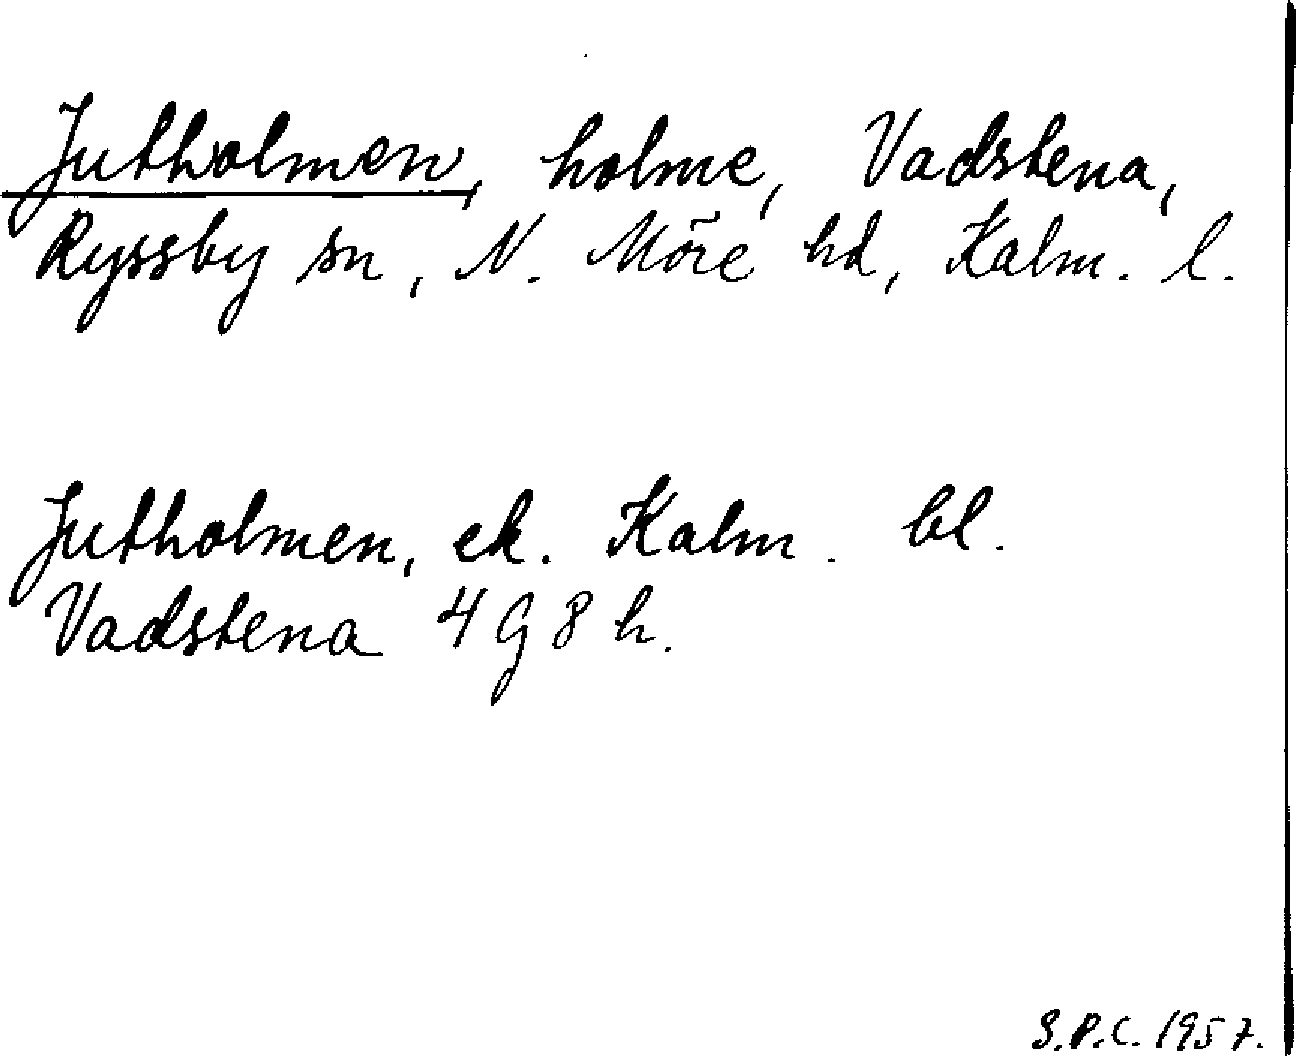 Jutholmen, holme, Vadstena,
Ryssby sn, N. Möre hd, Kalm. l.
Jutholmen, ek. Kalm. bl.
Vadstena 4 G 8 h.
S.P.C. 1957.